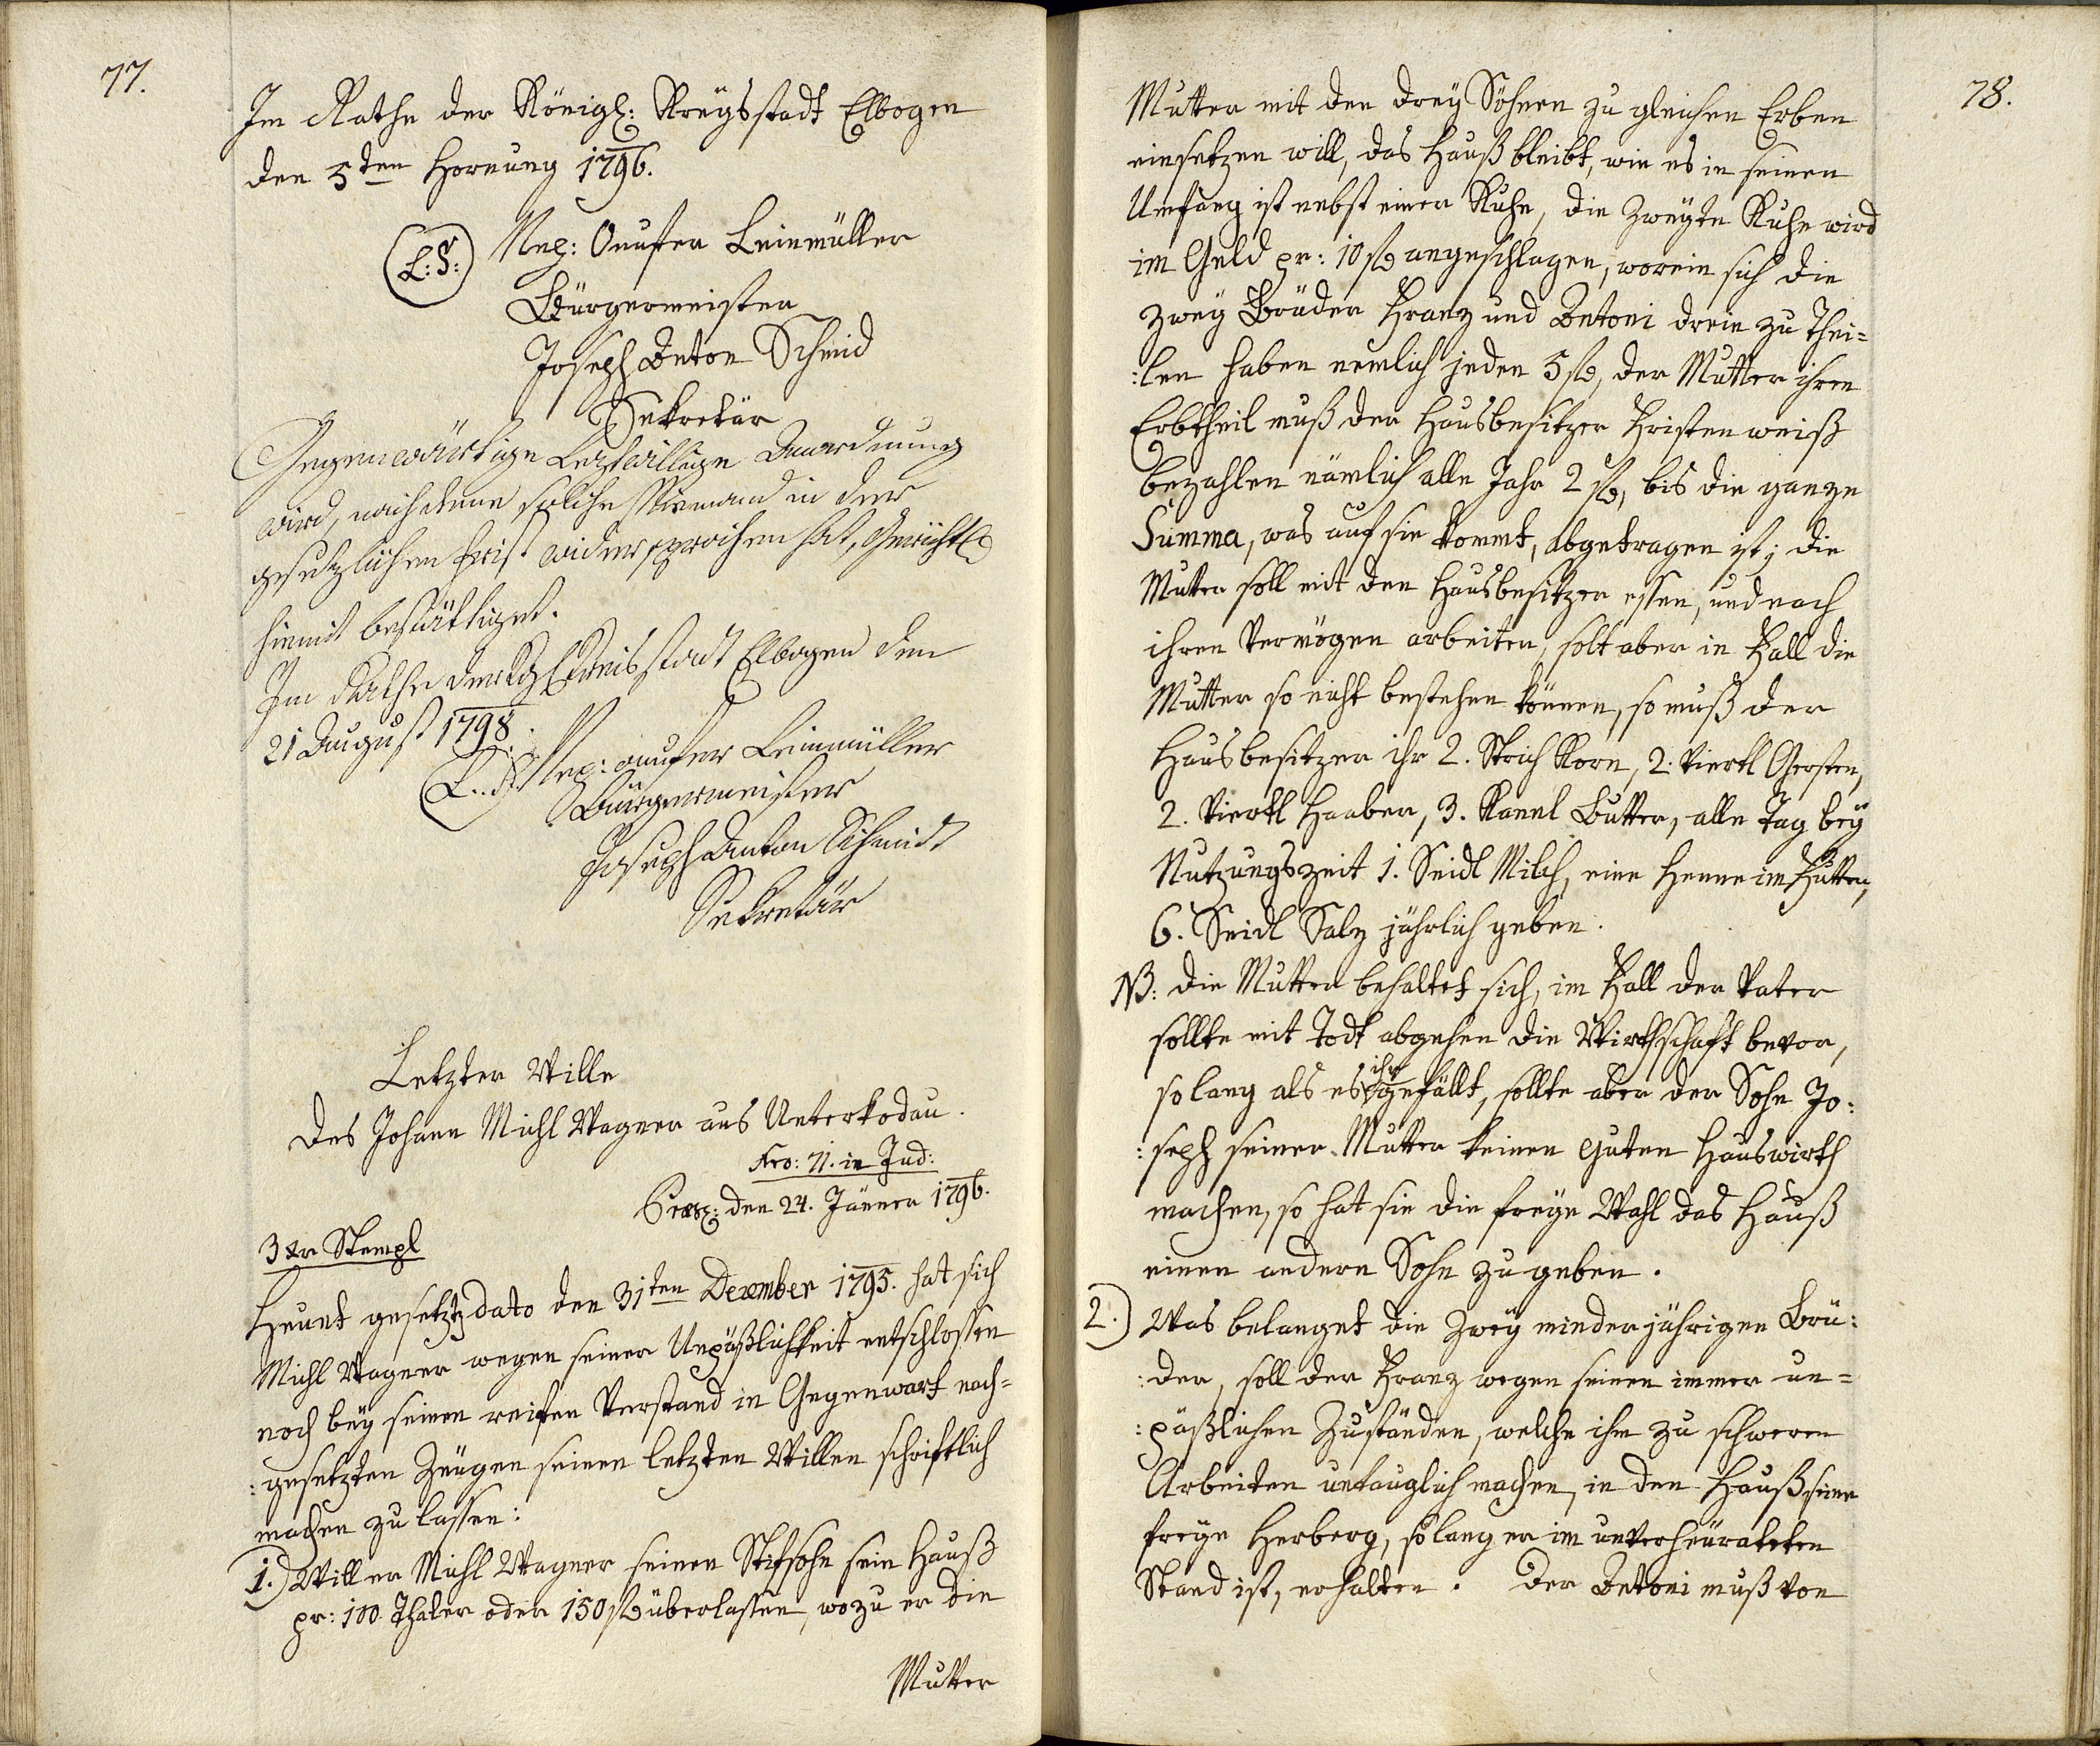 77.
Im Rathe der Königl: Kreysstadt Elbogen
den 5ten Hornung 1796.
L: S:
Nep: Onufer Leinmüller
Bürgermeister
Joseph Anton Schmid
Sekretär
Gegenwärtige Leztwillige Anordnung
wird, nachdeme solche Niemand in der
gesetzlichen Frist widersprochen hat, Gerichtl
hiemit bestättiget.
Im Rathe der Kgl Kreisstadt Elbogen den
21 August 1798.
L. S. Nep: onufer Leinmüller
Bürgermeister
Joseph Anton Schmidt
Sekretär
Letzter Wille
des Johann Michl Wagner aus Unterkodau.
Nro: 71. in Jud:
Praes: den 24. Jänner 1796.
3 xr Stempl
Heunt gesetzt dato den 31ten Dexember 1795. hat sich
Michl Wagner wegen seiner Unpäßlichkeit entschlossen
noch bey seinen reifen Verstand in Gegenwart nach=
:gesetzten Zeugen seinen letzten Willen schriftlich
machen zu lassen:
1.) Will er Michl Wagner seinen Stifsohn sein Hauß
pr: 100. Thaler oder 150 f überlassen, wozu er die
Mutter
78.
Mutter mit den drey Söhnen zu gleichen Erben
einsetzen will, das Hauß bleibt, wie es in seinen
Umfang ist nebst einer Kuhe, die Zweyte Kuhe wird
im Geld pr: 10 f angeschlagen, worein sich die
zwey Brüder Franz und Antoni drein zu Thei=
:len haben nemlich jeden 5 f, der Mutter ihren
Erbtheil muß der Hausbesitzer Fristen weiß
bezahlen nämlich alle Jahr 2 f, bis die ganze
Summa, was auf sie kommt, abgetragen ist; die
Mutter soll mit den Hausbesitzer essen, und nach
ihren Vermögen arbeiten, solt aber in Fall die
Mutter so nicht bestehen können, so muß der
Hausbesitzer ihr 2. Strich Korn, 2. Viertl Gersten,
2. Viertl Haaber, 3. Kannl Butter, alle Tag bey
Nutzungszeit 1. Seidl Milch, eine Henne im Futter,
6. Seidl Salz jährlich geben.
NB: die Mutter behaltet sich, im Fall der Vater
sollte mit Todt abgehen die Wirthschaft bevor,
so lang als es ihr gefällt, sollte aber der Sohn Jo:
:seph seiner Mutter keinen guten Hauswirth
machen, so hat sie die freye Wahl das Hauß
einen andern Sohn zu geben.
2.) Was belanget die Zwey minderjährigen Brü:
:der, soll der Franz wegen seinen immer un=
:päßlichen Zuständen, welche ihm zu schweren
Arbeiten untauglich machen, in den Hauß seine
freye Herberg, so lang er im unverheürateten
Stand ist, erhalten. Der Antoni muß von